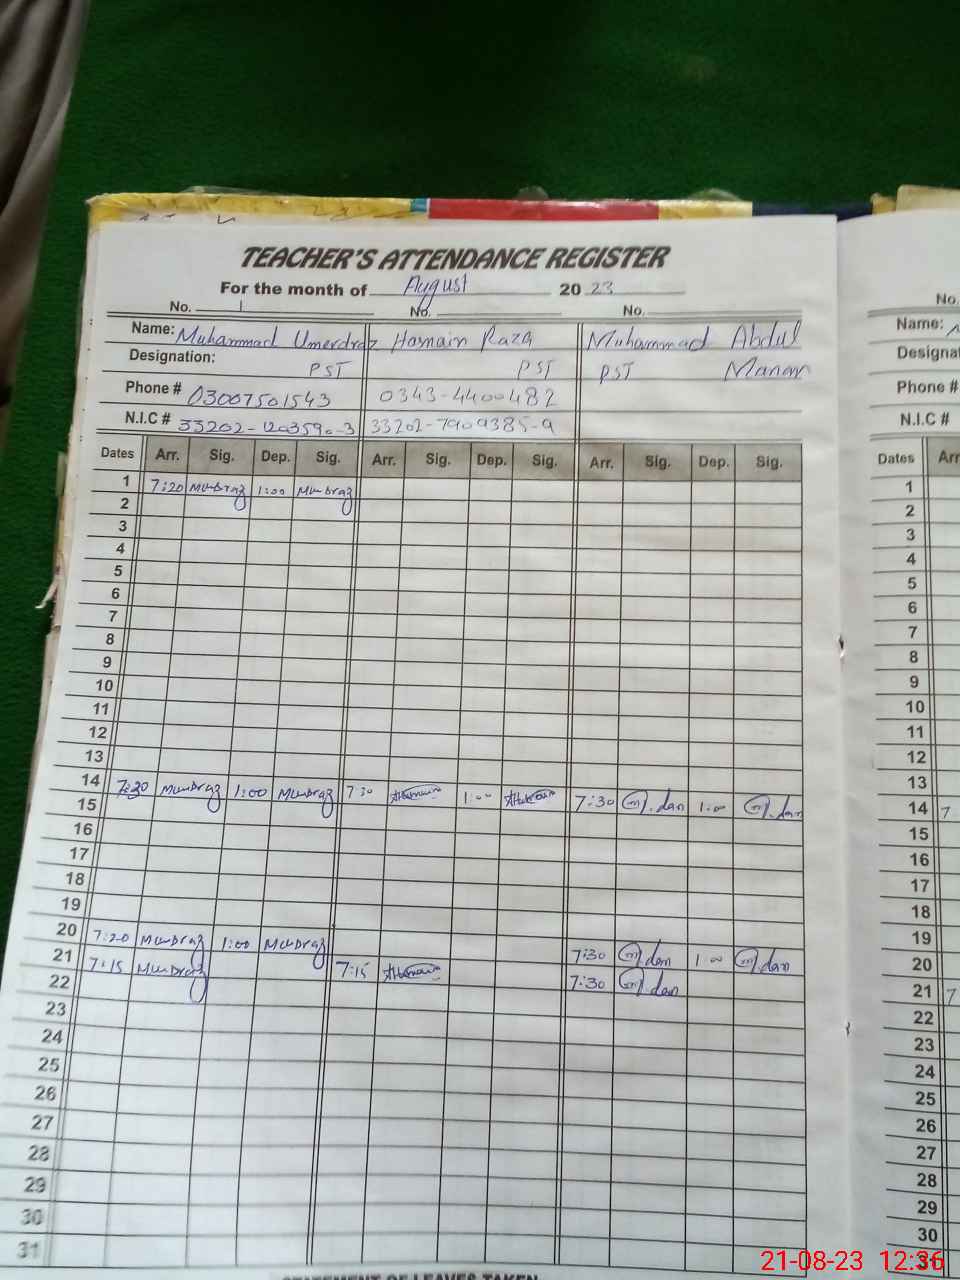 TEACHER'S ATTENDANCE REGISTER
For the month of August 2023
No. 1 No. No.
Name: Muhammad Umerdraz Hasnain Raza Muhammad Abdul
Designation: PST PST PST Manan
Phone # 03007501543 0343-4400482
N.I.C # 33202-1203590-3 33202-7909385-9
Dates Arr. Sig. Dep. Sig. Arr. Sig. Dep. Sig. Arr. Sig. Dep. Sig.
1 7:20 Mumdraz 1:00 Mumdraz
2
3
4
5
6
7
8
9
10
11
12
13
14 7:20 Mumdraz 1:00 Mumdraz 7:30 1:00 7:30 1:00
15
16
17
18
19
20 7:20 Mumdraz 1:00 Mumdraz 7:30 1:00
21 7:15 Mumdraz 7:15 7:30
22
23
24
25
26
27
28
29
30
31
STATEMENT OF LEAVES TAKEN
No.
Name:
Designat
Phone #
N.I.C #
Dates Arr
1
2
3
4
5
6
7
8
9
10
11
12
13
14 7
15
16
17
18
19
20
21 7
22
23
24
25
26
27
28
29
30
31
21-08-23 12:36